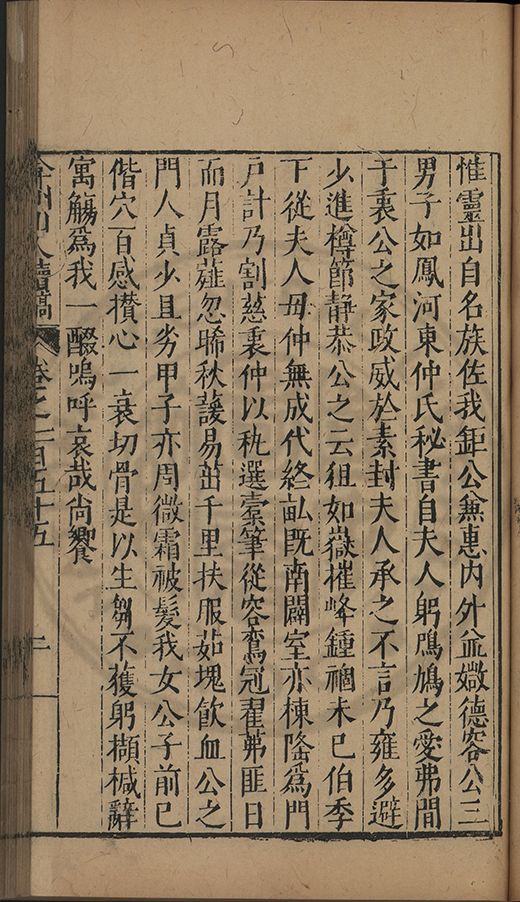 惟靈出自名族佐我鉅公兼惠内外並媺德容公三
男子如鳳河東仲氏秘書自夫人躬鳲鳩之愛弗間
于裏公之家政威於素封夫人承之不言乃雍多避
少進樽節靜恭公之云徂如嶽摧峰鍾禍未已伯季
下從夫人毋仲無成代終畝既南闢室亦棟隆為門
戶計乃割慈裏仲以秇選橐筆從容鶯冠翟茀匪日
而月露薤忽晞秋蘐易茁千里扶服茹塊飲血公之
門人貞少且劣甲子亦周微霜被髮我女公子前已
偕穴百感攢心一哀切骨是以生芻不獲躬擷椷辭
寓觴為我一醊嗚呼哀哉尚饗
弇州山人續稿 卷之一百五十五 二